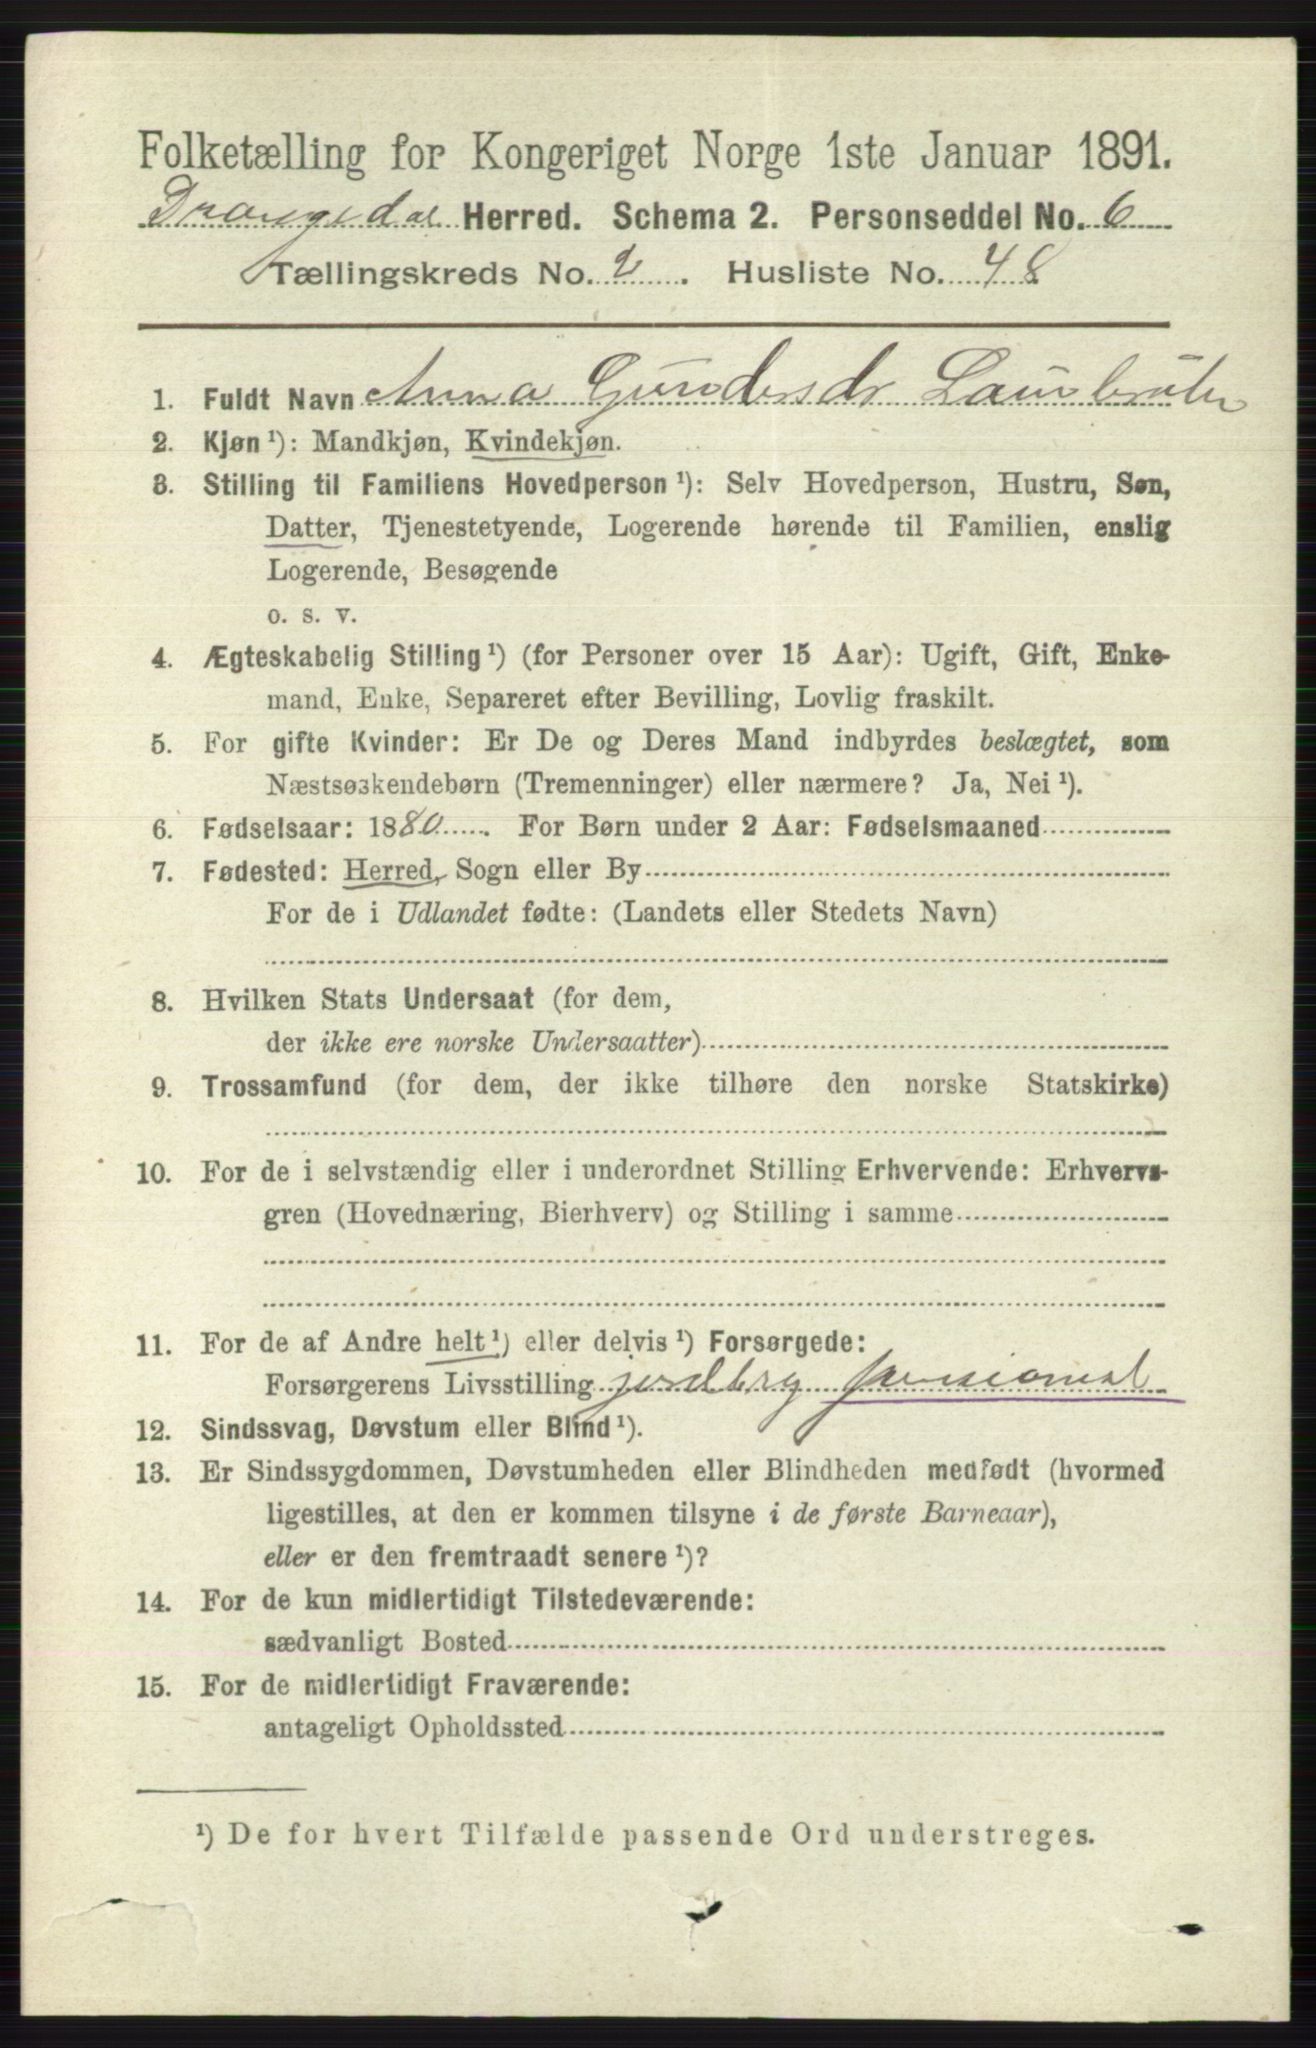 Folketælling for Kongeriget Norge 1ste Januar 1891.
Drangedal Herred. Schema 2. Personseddel No. 6
Tællingskreds No. 2. Husliste No. 48
1. Fuldt Navn Anna Gundersdr
2. Kjøn ¹): Mandkjøn, Kvindekjøn.
3. Stilling til Familiens Hovedperson ¹): Selv Hovedperson, Hustru, Søn,
Datter, Tjenestetyende, Logerende hørende til Familien, enslig
Logerende, Besøgende
o. s. v.
4. Ægteskabelig Stilling ¹) (for Personer over 15 Aar): Ugift, Gift, Enke-
mand, Enke, Separeret efter Bevilling, Lovlig fraskilt.
5. For gifte Kvinder: Er De og Deres Mand indbyrdes beslægtet, som
Næstsøskendebørn (Tremenninger) eller nærmere? Ja, Nei ¹).
6. Fødselsaar: 1880. For Børn under 2 Aar: Fødselsmaaned
7. Fødested: Herred, Sogn eller By
For de i Udlandet fødte: (Landets eller Stedets Navn)
8. Hvilken Stats Undersaat (for dem,
der ikke ere norske Undersaatter)
9. Trossamfund (for dem, der ikke tilhøre den norske Statskirke)
10. For de i selvstændig eller i underordnet Stilling Erhvervende: Erhvervs-
gren (Hovednæring, Bierhverv) og Stilling i samme
11. For de af Andre helt ¹) eller delvis ¹) Forsørgede:
Forsørgerens Livsstilling jordbrg
12. Sindssvag, Døvstum eller Blind ¹).
13. Er Sindssygdommen, Døvstumheden eller Blindheden medfødt (hvormed
ligestilles, at den er kommen tilsyne i de første Barneaar),
eller er den fremtraadt senere ¹)?
14. For de kun midlertidigt Tilstedeværende:
sædvanligt Bosted
15. For de midlertidigt Fraværende:
antageligt Opholdssted
¹) De for hvert Tilfælde passende Ord understreges.